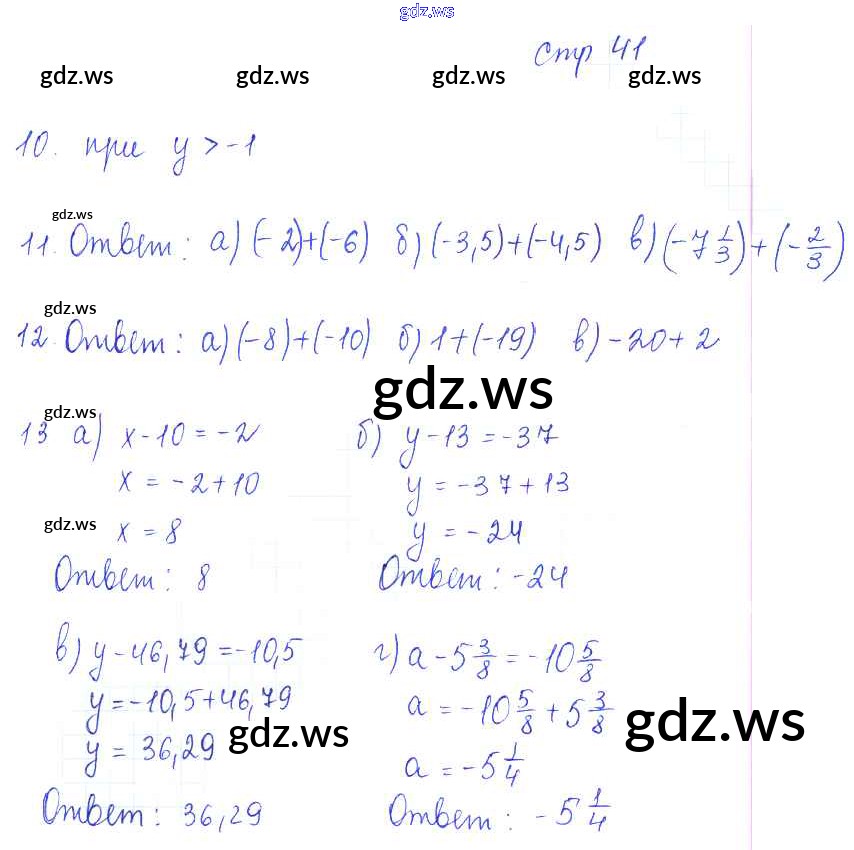 gdz.ws
Стр 41
gdz.ws gdz.ws gdz.ws gdz.ws
10. при y > -1
gdz.ws
11. Ответ: а) (-2)+(-6) б) (-3,5)+(-4,5) в) (-7 1/3)+(-2/3)
gdz.ws
12. Ответ: а) (-8)+(-10) б) 1+(-19) в) -20+2
gdz.ws
gdz.ws
13 а) x-10=-2 б) y-13=-37
x = -2+10 y = -37+13
gdz.ws
x = 8 y = -24
Ответ: 8 Ответ: -24
в) y-46,79=-10,5 г) a-5 3/8=-10 5/8
y=-10,5+46,79 a = -10 5/8 + 5 3/8
gdz.ws gdz.ws
y = 36,29 a = -5 1/4
Ответ: 36,29 Ответ: -5 1/4